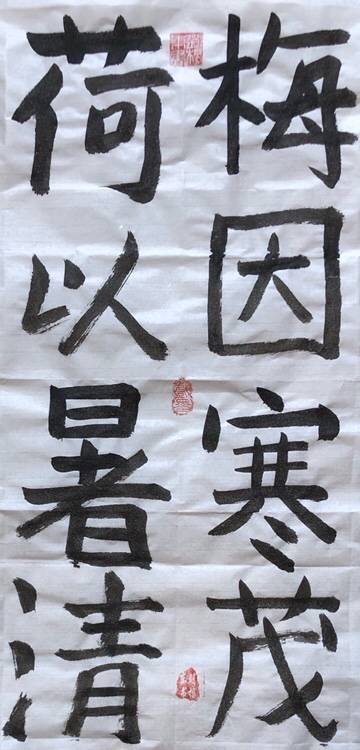 梅因寒茂
荷以暑清